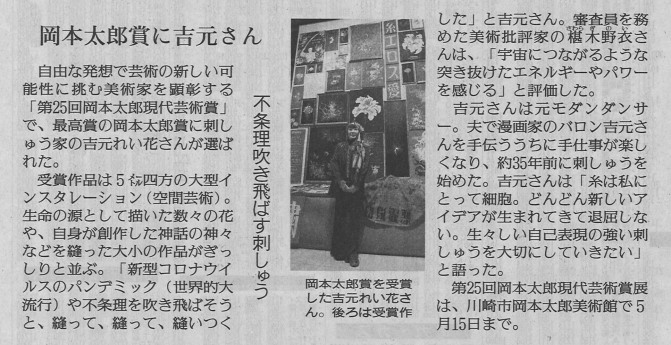 岡本太郎賞に吉元さん
不条理吹き飛ばす刺しゅう
自由な発想で芸術の新しい可
能性に挑む美術家を顕彰する
「第25回岡本太郎現代芸術賞」
で、最高賞の岡本太郎賞に刺し
ゅう家の吉元れい花さんが選ば
れた。
受賞作品は5㍍四方の大型イ
ンスタレーション（空間芸術）。
生命の源として描いた数々の花
や、自身が創作した神話の神々
などを縫った大小の作品がぎっ
しりと並ぶ。「新型コロナウイ
ルスのパンデミック（世界的大
流行）や不条理を吹き飛ばそう
と、縫って、縫って、縫いつく
した」と吉元さん。審査員を務
めた美術批評家の椹木野衣さ
んは、「宇宙につながるような
突き抜けたエネルギーやパワー
を感じる」と評価した。
吉元さんは元モダンダンサ
ー。夫で漫画家のバロン吉元さ
んを手伝ううちに手仕事が楽し
くなり、約35年前に刺しゅうを
始めた。吉元さんは「糸は私に
とって細胞。どんどん新しいア
イデアが生まれてきて退屈しな
い。生々しい自己表現の強い刺
しゅうを大切にしていきたい」
と語った。
第25回岡本太郎現代芸術賞展
は、川崎市岡本太郎美術館で5
月15日まで。
岡本太郎賞を受賞
した吉元れい花さ
ん。後ろは受賞作